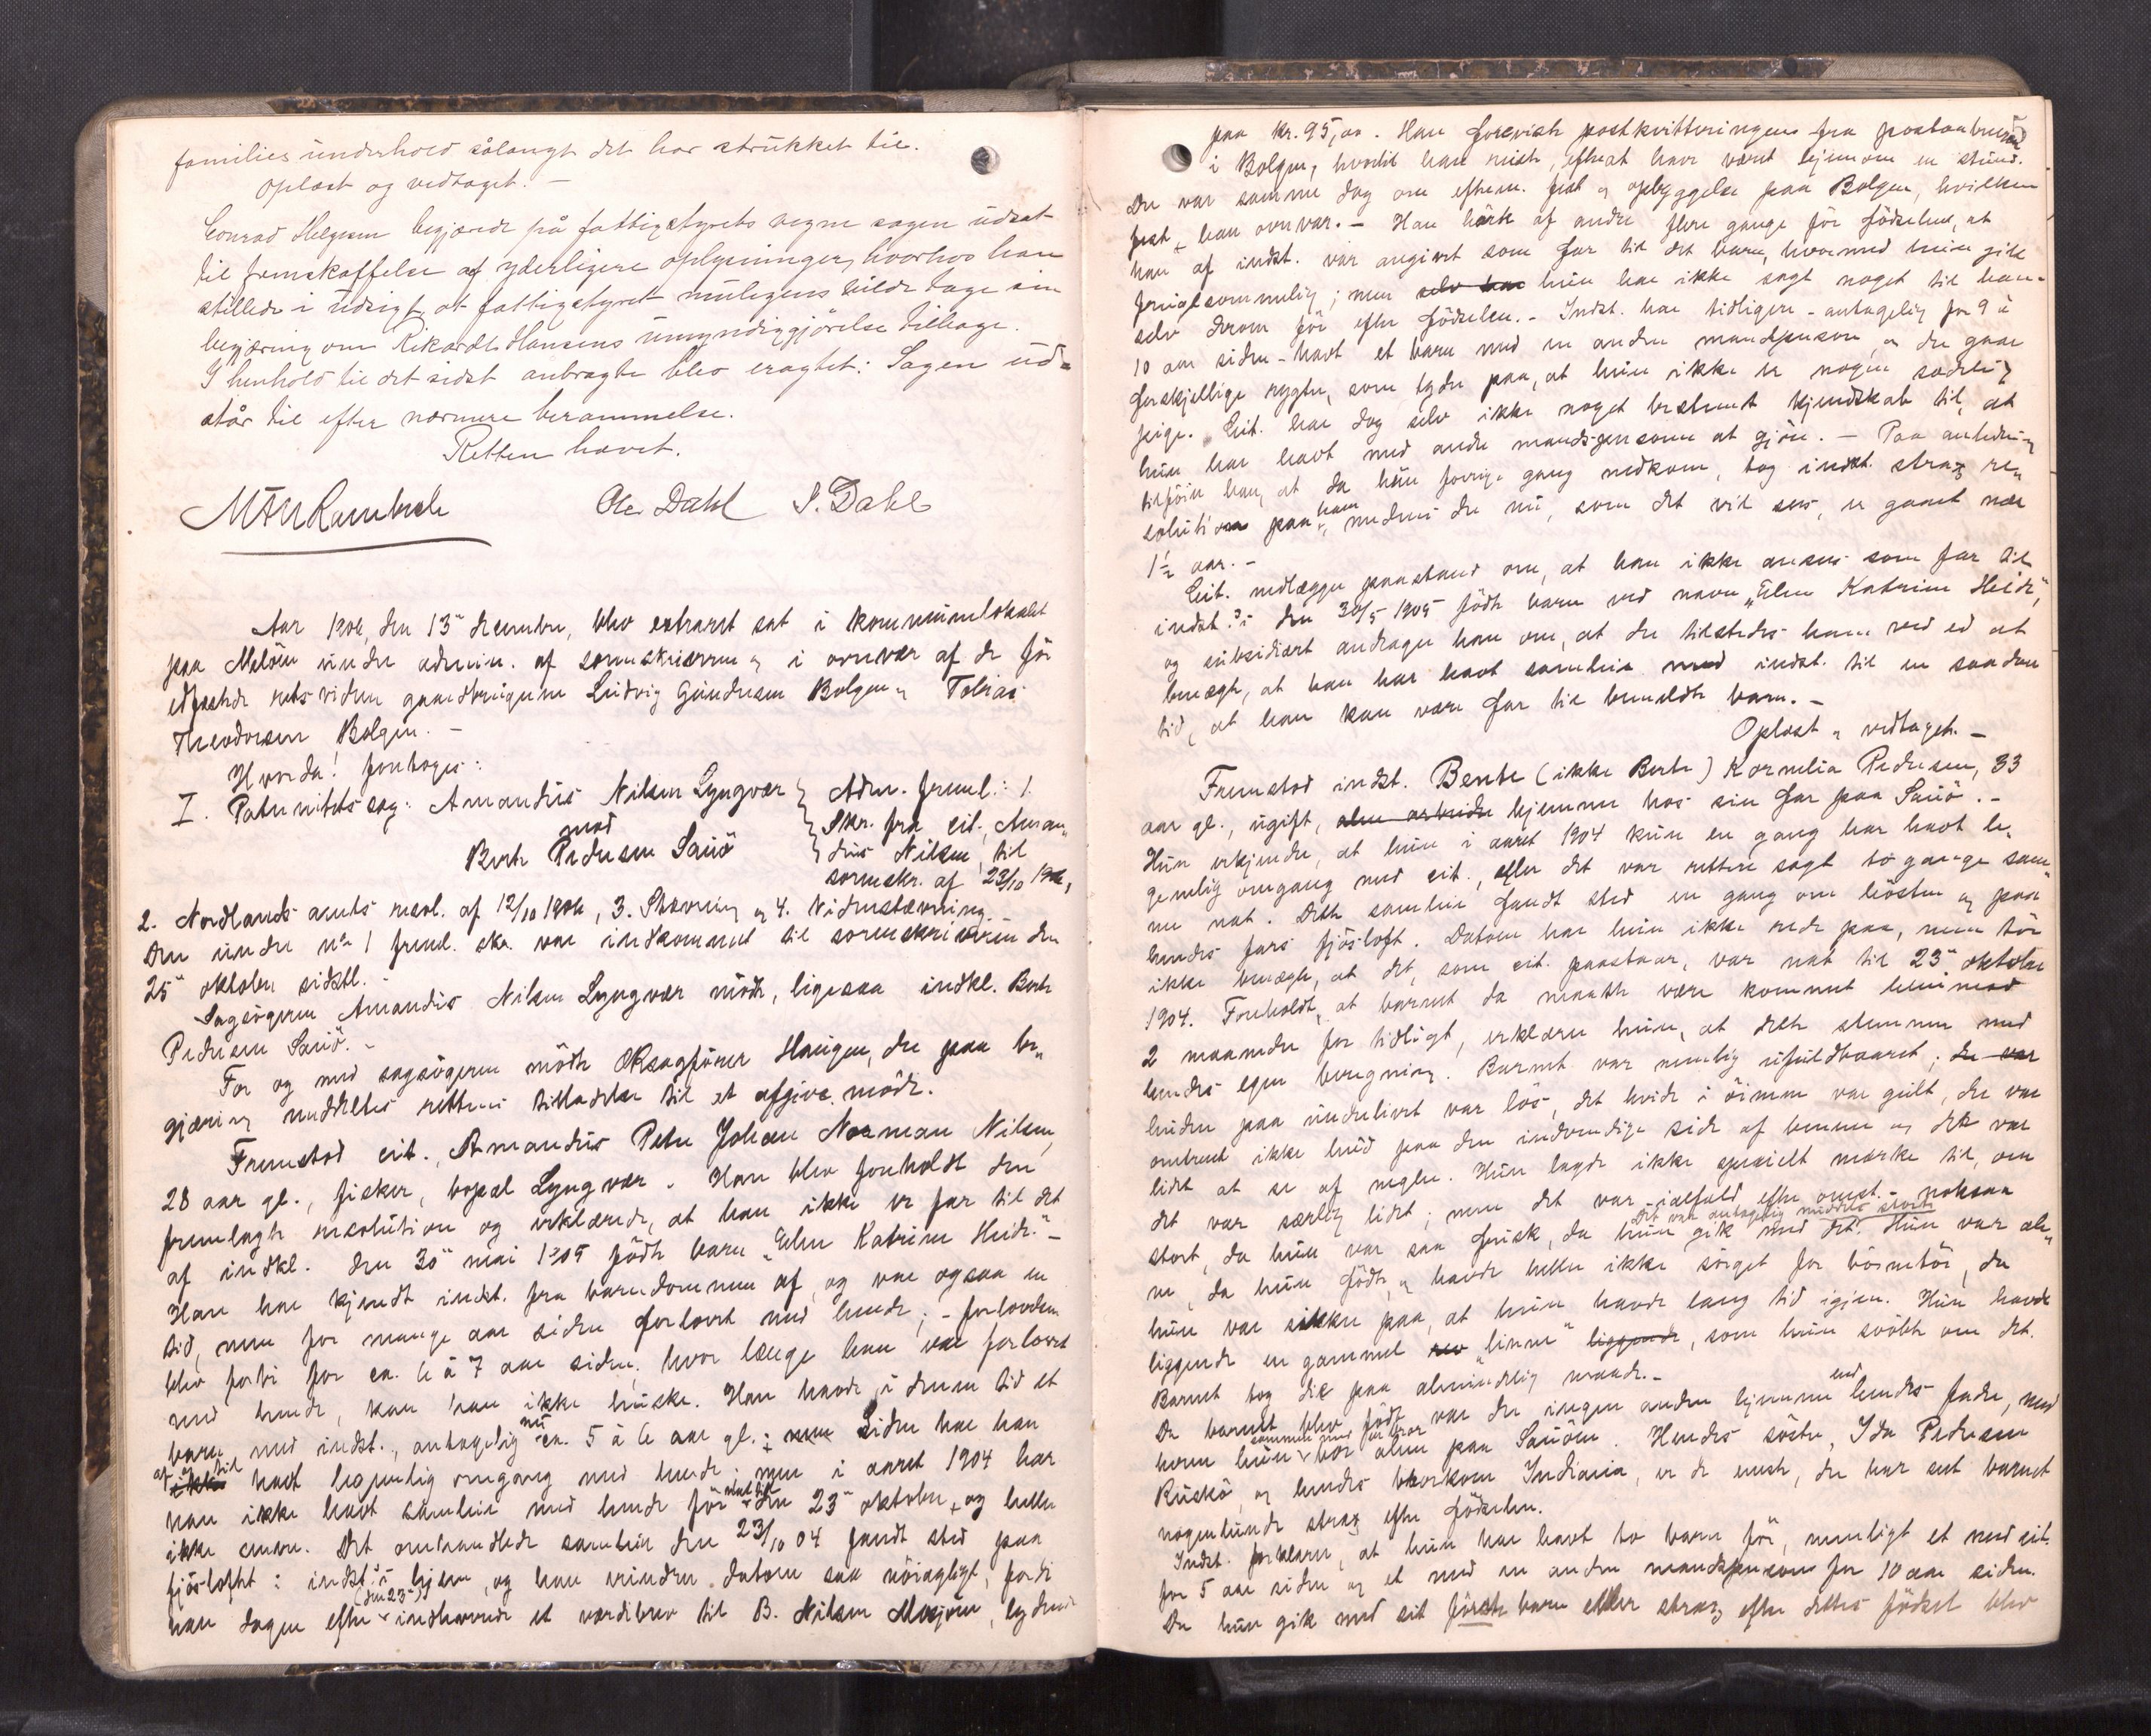 families underhold sålangt det har strukket til.
Oplæst og vedtaget. –
Conrad Helgesen begjærede på fattigstyrets vegne sagen udsat
til fremskaffelse af yderligere oplysninger, hvorhos han
stillede i udsigt, at fattigstyret muligens vilde tage sin
begjæring om Rikardt Hansens umyndiggjørelse tilbage.
I henhold til det sidst anbragte blev eragtet: Sagen ud-
står til efter nærmere berammelse.
Retten hævet.
Ole Dahl S. Dahl
Aar 1906, den 13de december, blev extraret sat i kommunelokalet
paa Meløen under admin. af sorenskriveren og i overvær af de før
edfæstede retsvidner gaardbrugerne Ludvig Gundersen Bolgen og Tobias
Theodorsen Bolgen. –
Hvorda! foretoges:
I. Paternitetssag: Amandus Nilsen Lyngvær
mod
Berte Pedersen Sauø
Adm. freml.: 1.
Skr. fra cit., Aman„
dus Nilsen, til
sorenskr. af 23/10 1906,
2. Nordlands amts resol. af 12/10 1906, 3. Stævning og 4. Vidnestævning. –
Den under No 1 freml. skr. var indkommet til sorenskriveren den
25de oktober sidstl. –
Sagsøgeren Amandus Nilsen Lyngvær mødte, ligesaa indkl. Berte
Pedersen Sauø. –
For og med sagsøgeren mødte Oksagfører Haugen, der paa be„
gjæring meddeltes rettens tilladelse til at afgive møde.
Fremstod cit., Amandus Peter Johan Norman Nilsen,
28 aar gl., fisker, bopæl Lyngvær. Han blev foreholdt den
fremlagte resolution og erklærede, at han ikke er far til det
af indkl. den 30te mai 1905 fødte barn „Elen Katrine Heide". –
Han har kjendt indst. fra barndommen af, og var ogsaa en
tid, men for mange aar siden forlovet med hende; – forlovelsen
blev forbi for ca. 6 à 7 aar siden; hvor længe han var forlovet
med hende, kan han ikke huske. Han havde i denne tid et
barn med indst., antagelig nu ca. 5 à 6 aar gl.; men Siden har han
af og til ikke havt legemlig omgang med hende; men i aaret 1904 har
han ikke havt samleie med hende før nat til den 23de oktober, og heller
ikke senere. Det omhandlede samleie den 23/10 04 fandt sted paa
fjøsloftet i indst.s hjem, og han erindrer datoen saa nøiagtigt, fordi
han dagen efter (den 23de) indleverede et værdibrev til B. Nilsen Mosjøen, lydende
paa kr. 95,00. Han foreviste postkvitteringen fra postaabneriet
i Bolgen, hvortil han reiste, efterat have været hjemom en stund.
Der var samme dag om efterm. fest og opbyggelse paa Bolgen, hvilken
fest han overvar. – Han hørte af andre flere gange før fødselen, at
han af indst. var angivet som far til det barn, hvormed hun gik
frugtsommelig; men selv har hun har ikke sagt noget til ham
selv derom før efter fødselen. – Indst. har tidligere – antagelig for 9 à
10 aar siden – havt et barn med en anden mandsperson, og der gaar
forskjellige rygter, som tyder paa, at hun ikke er nogen sædelig
pige. Cit. har dog selv ikke noget bestemt kjendskab til, at
hun har havt med andre mandspersoner at gjøre. – Paa anledning
tilføier han, at da hun forrige gang nedkom, tog indst. strax re„
solution paa ham, medens der nu, som det vil sees, er gaaet nær
1½ aar. –
Cit. nedlægger paastand om, at han ikke ansees som far til
indst.s den 30/5 1905 fødte barn ved navn „Elen Katrine Heide",
og subsidiært andrager han om, at der tilstedes ham ved ed at
benægte, at han har havt samleie med indst. til en saadan
tid, at han kan være far til bemeldte barn. –
Oplæst og vedtaget. –
Fremstod indst. Bente (ikke Berte) Kornelia Pedersen, 33
aar gl., ugift, alm arbeider hjemme hos sin far paa Sauø. –
Hun erkjender, at hun i aaret 1904 kun en gang har havt le„
gemlig omgang med cit., eller det var rettere sagt to gange sam„
me nat. Dette samleie fandt sted en gang om høsten og paa
hendes fars fjøsloft. Datoen har hun ikke rede paa, men tør
ikke benægte, at det, som cit. paastaar, var nat til 23de oktober
1904. Foreholdt, at barnet da maatte være kommet henimod
2 maaneder for tidligt, erklærer hun, at dette stemmer med
hendes egen beregning. Barnet var nemlig ufuldbaaret; der var
huden paa underlivet var løs, det hvide i øinene var gult, der var
omtrent ikke hud paa den indvendige side af benene og der var
lidet at se af negler. Hun lagde ikke specielt mærke til, om
det var særlig lidet; men det var ialfald efter omst. noksaa
stort, da hun var saa frisk, da hun gik med det. Det var antagelig middels stort. Hun var ale„
ne, da hun fødte, og havde heller ikke sørget for børnetøi, da
hun var sikker paa, at hun havde lang tid igjen. Hun havde
liggende en gammel rev „linne" liggende, som hun svøbte om det.
Barnet tog die paa almindelig maade. –
Da barnet blev født, var der ingen anden hjemme end hendes fader, med
hvem hun sammen med en bror bor alene paa Sauøen. Hendes søster, Ida Pedersen
Ruskø, og hendes Indiania, er de eneste, der har set barnet
nogenlunde strax efter fødselen.
Indst. forklarer, at hun har havt to barn før, nemligt et med cit.
for 5 aar siden og et med en anden mandsperson for 10 aar siden.
Da hun gik med sit første barn eller strax efter dettes fødsel blev